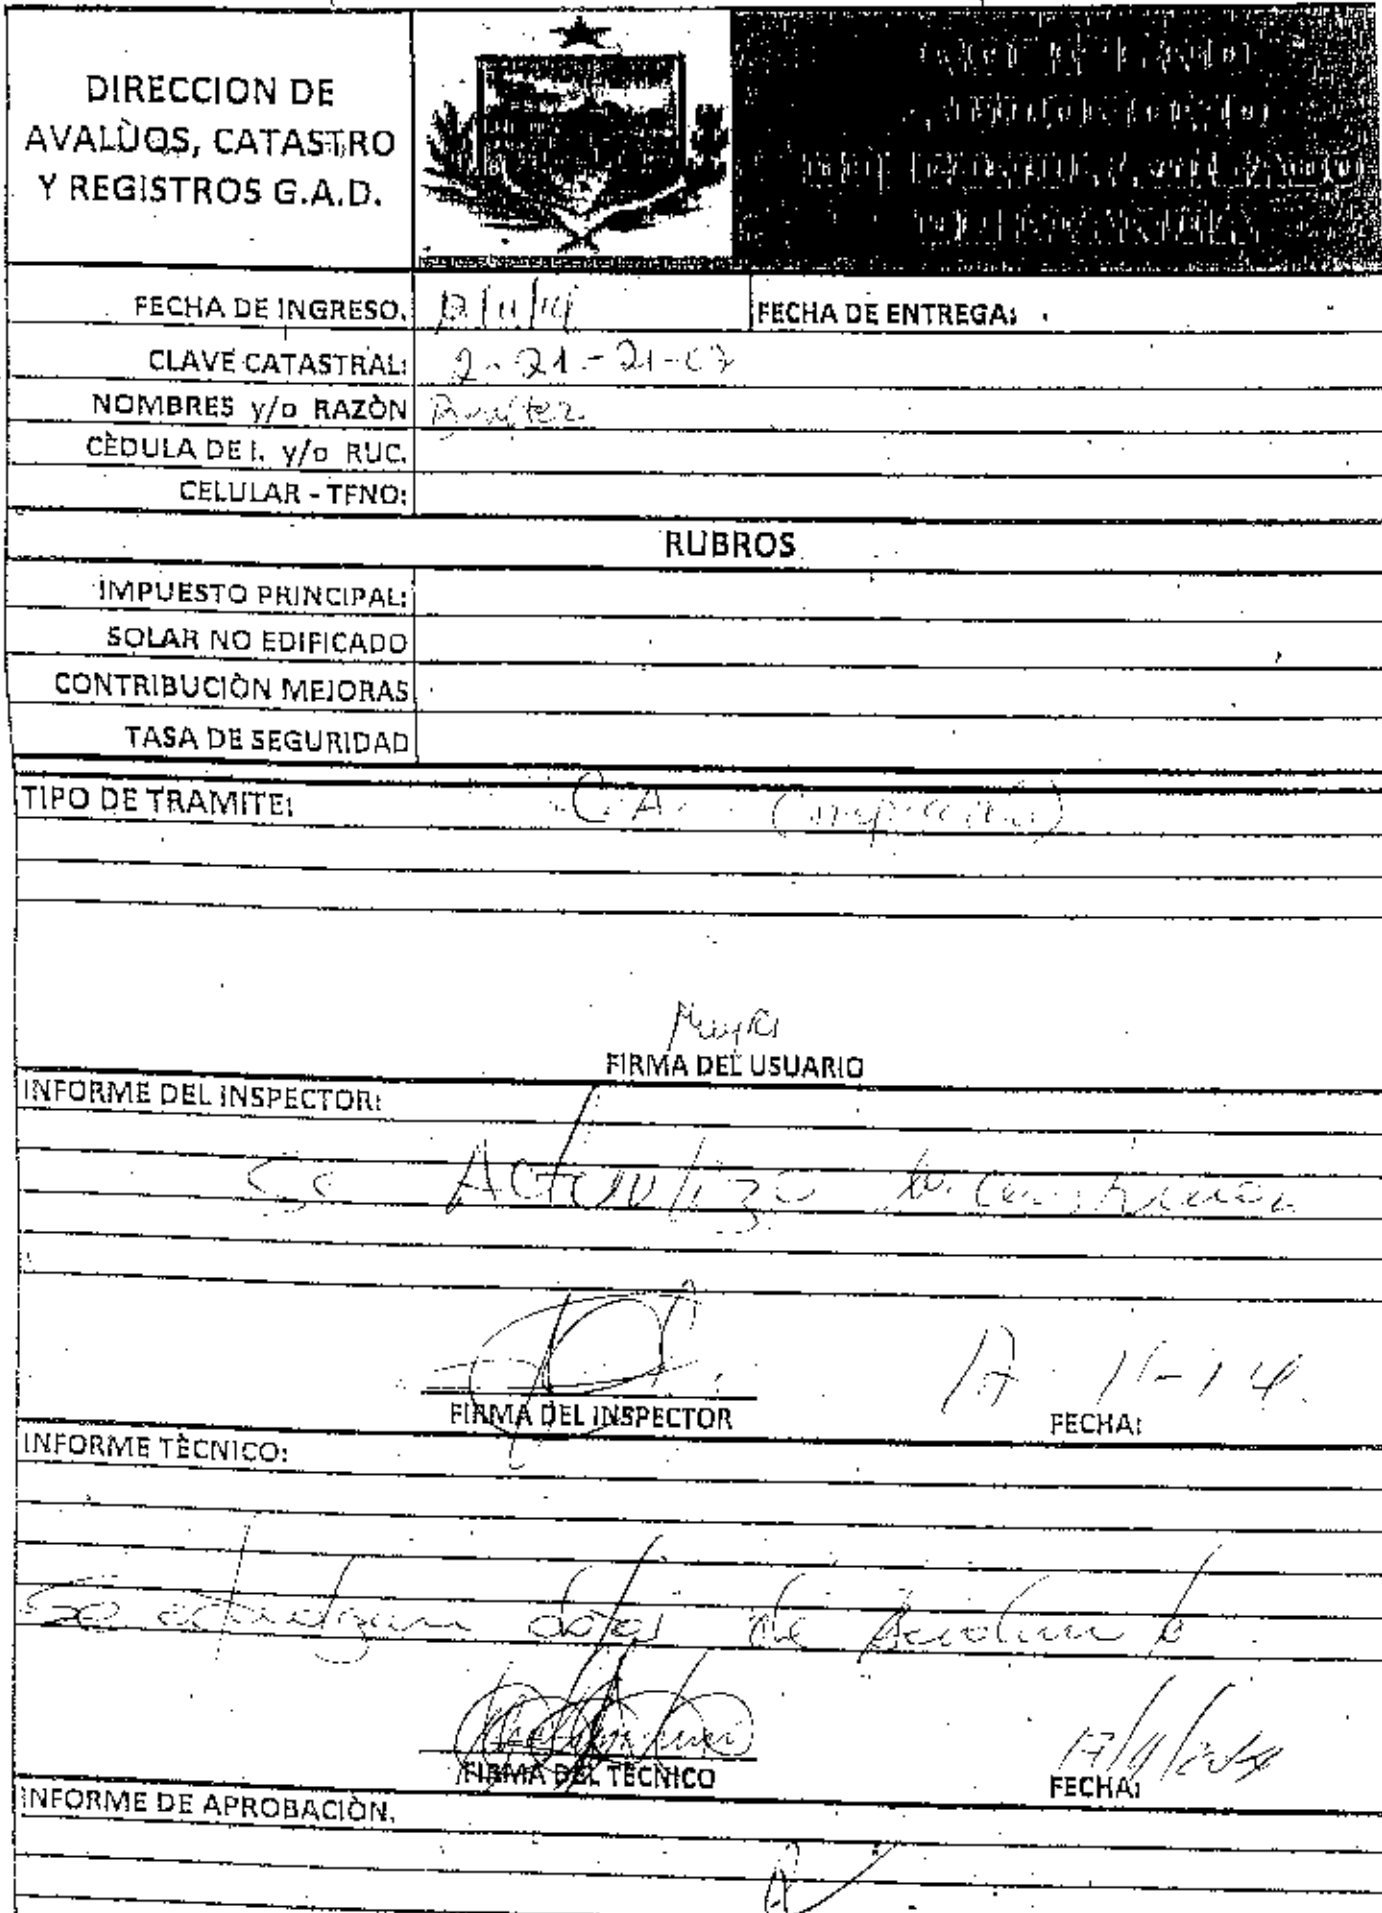 DIRECCION DE
AVALÙOS, CATASTRO
Y REGISTROS G.A.D.
FECHA DE INGRESO. 12/11/14 FECHA DE ENTREGA:
CLAVE CATASTRAL: 2-21-21-07
NOMBRES y/o RAZÒN Benítez
CÈDULA DE I. y/o RUC.
CELULAR - TFNO:
RUBROS
IMPUESTO PRINCIPAL:
SOLAR NO EDIFICADO
CONTRIBUCIÒN MEJORAS
TASA DE SEGURIDAD
TIPO DE TRAMITE: C.A.
FIRMA DEL USUARIO
INFORME DEL INSPECTOR:
Se Actualizo la Construccion
FIRMA DEL INSPECTOR 17-11-14
FECHA:
INFORME TÈCNICO:
Se datos de
FIRMA DEL TECNICO 17/11/2014
FECHA:
INFORME DE APROBACIÒN.